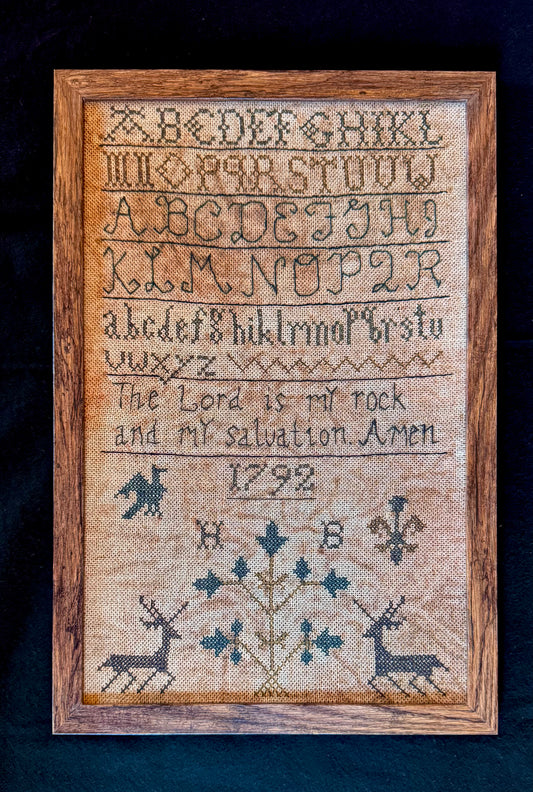 ABCDEFGHIKL
MNOPqRSTUUW
ABCDEFGHI
KLMNOPQR
abcdefghiklmnopqrstu
vwxyz
The Lord is my rock
and my salvation. Amen
1792
H B